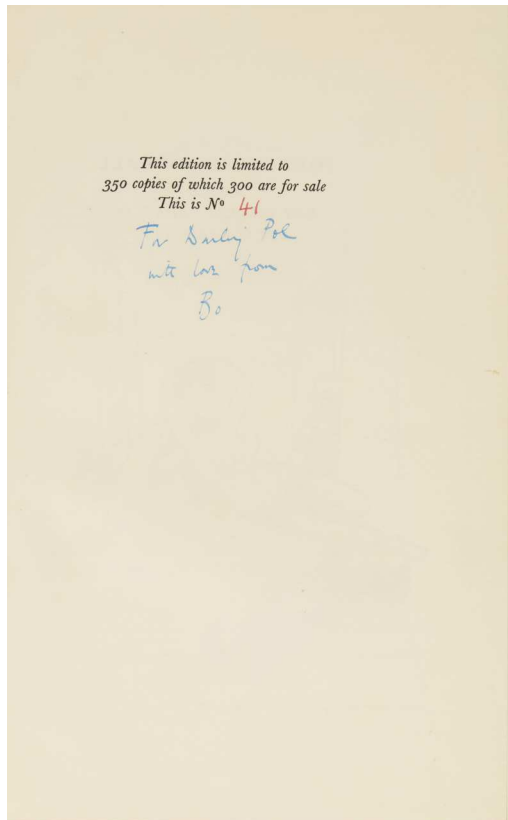 This edition is limited to
350 copies of which 300 are for sale
This is Nº 41
For Darling Pol
with love from
Bo